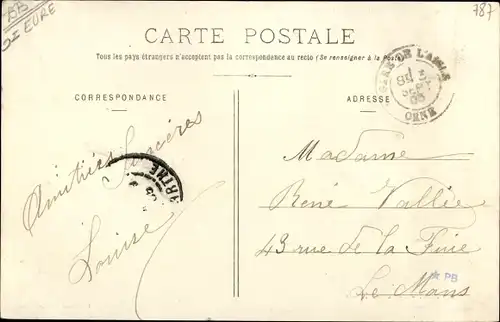 BB
EURE
787
CARTE POSTALE
Tous les pays étrangers n'acceptent pas la correspondance au recto (Se renseigner à la Poste)
CORRESPONDANCE
ADRESSE
GARE DE L'AIGLE
8E 3
SEPT
05
ORNE
Amitiés Sincères
Louise
ARTHE
Madame
René Vallée
43 rue de la
Le Mans
PB